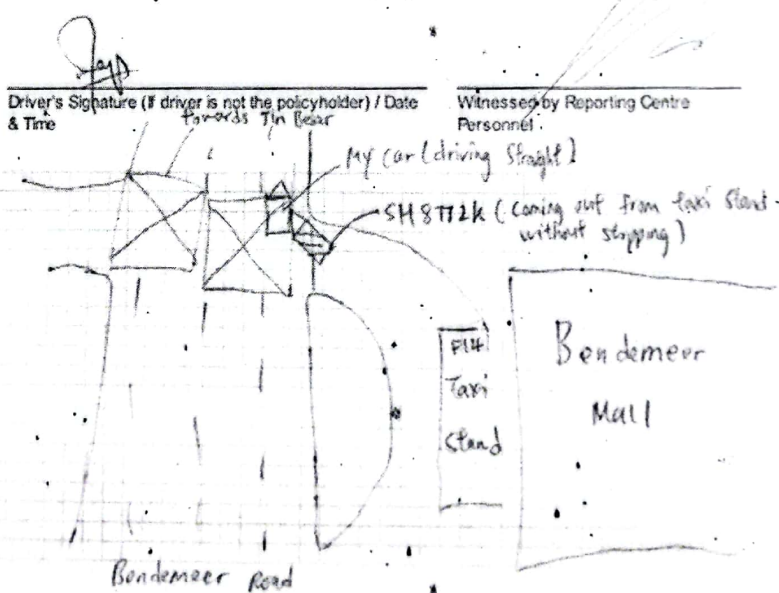 Driver's Signature (If driver is not the policyholder) / Date
& Time
Witnessed by Reporting Centre
Personnel
towards Jln Besar
My car (driving straight)
(coming out from taxi stand
without stopping)
Taxi
Stand
Bendemeer
Mall
Bendemeer Road